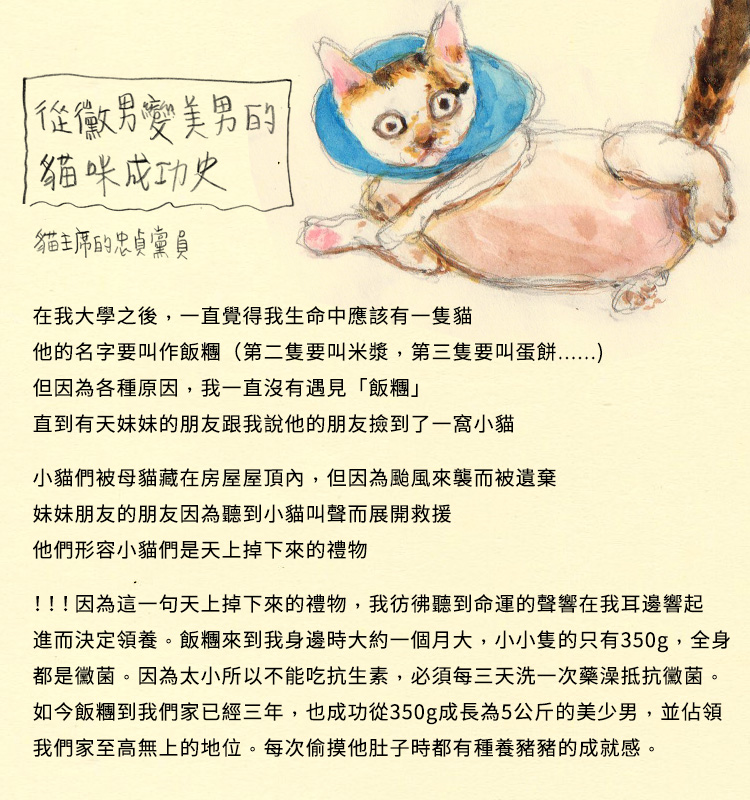 從黴男變美男的
貓咪成功史
貓主席的忠貞黨員
在我大學之後，一直覺得我生命中應該有一隻貓
他的名字要叫作飯糰（第二隻要叫米漿，第三隻要叫蛋餅......)
但因為各種原因，我一直沒有遇見「飯糰」
直到有天妹妹的朋友跟我說他的朋友撿到了一窩小貓
小貓們被母貓藏在房屋屋頂內，但因為颱風來襲而被遺棄
妹妹朋友的朋友因為聽到小貓叫聲而展開救援
他們形容小貓們是天上掉下來的禮物
!!!因為這一句天上掉下來的禮物，我彷彿聽到命運的聲響在我耳邊響起
進而決定領養。飯糰來到我身邊時大約一個月大，小小隻的只有350g，全身
都是黴菌。因為太小所以不能吃抗生素，必須每三天洗一次藥澡抵抗黴菌。
如今飯糰到我們家已經三年，也成功從350g成長為5公斤的美少男，並佔領
我們家至高無上的地位。每次偷摸他肚子時都有種養豬豬的成就感。